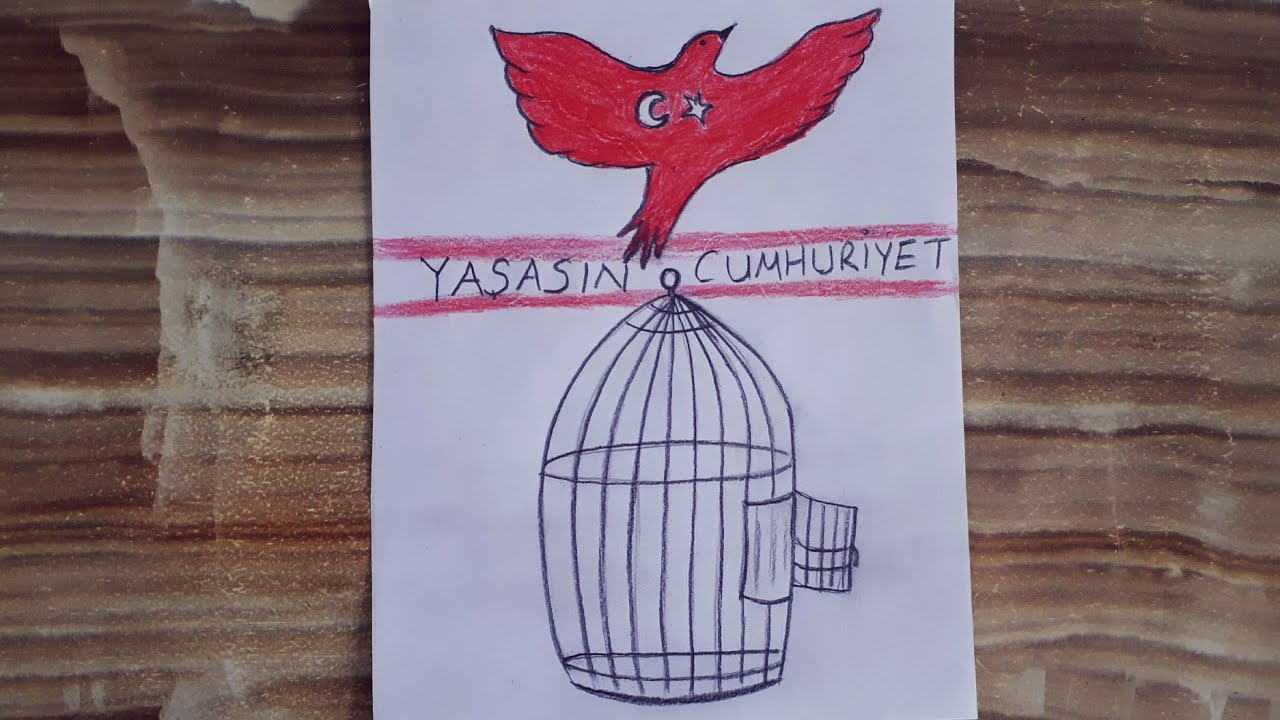 YAŞASIN CUMHURİYET